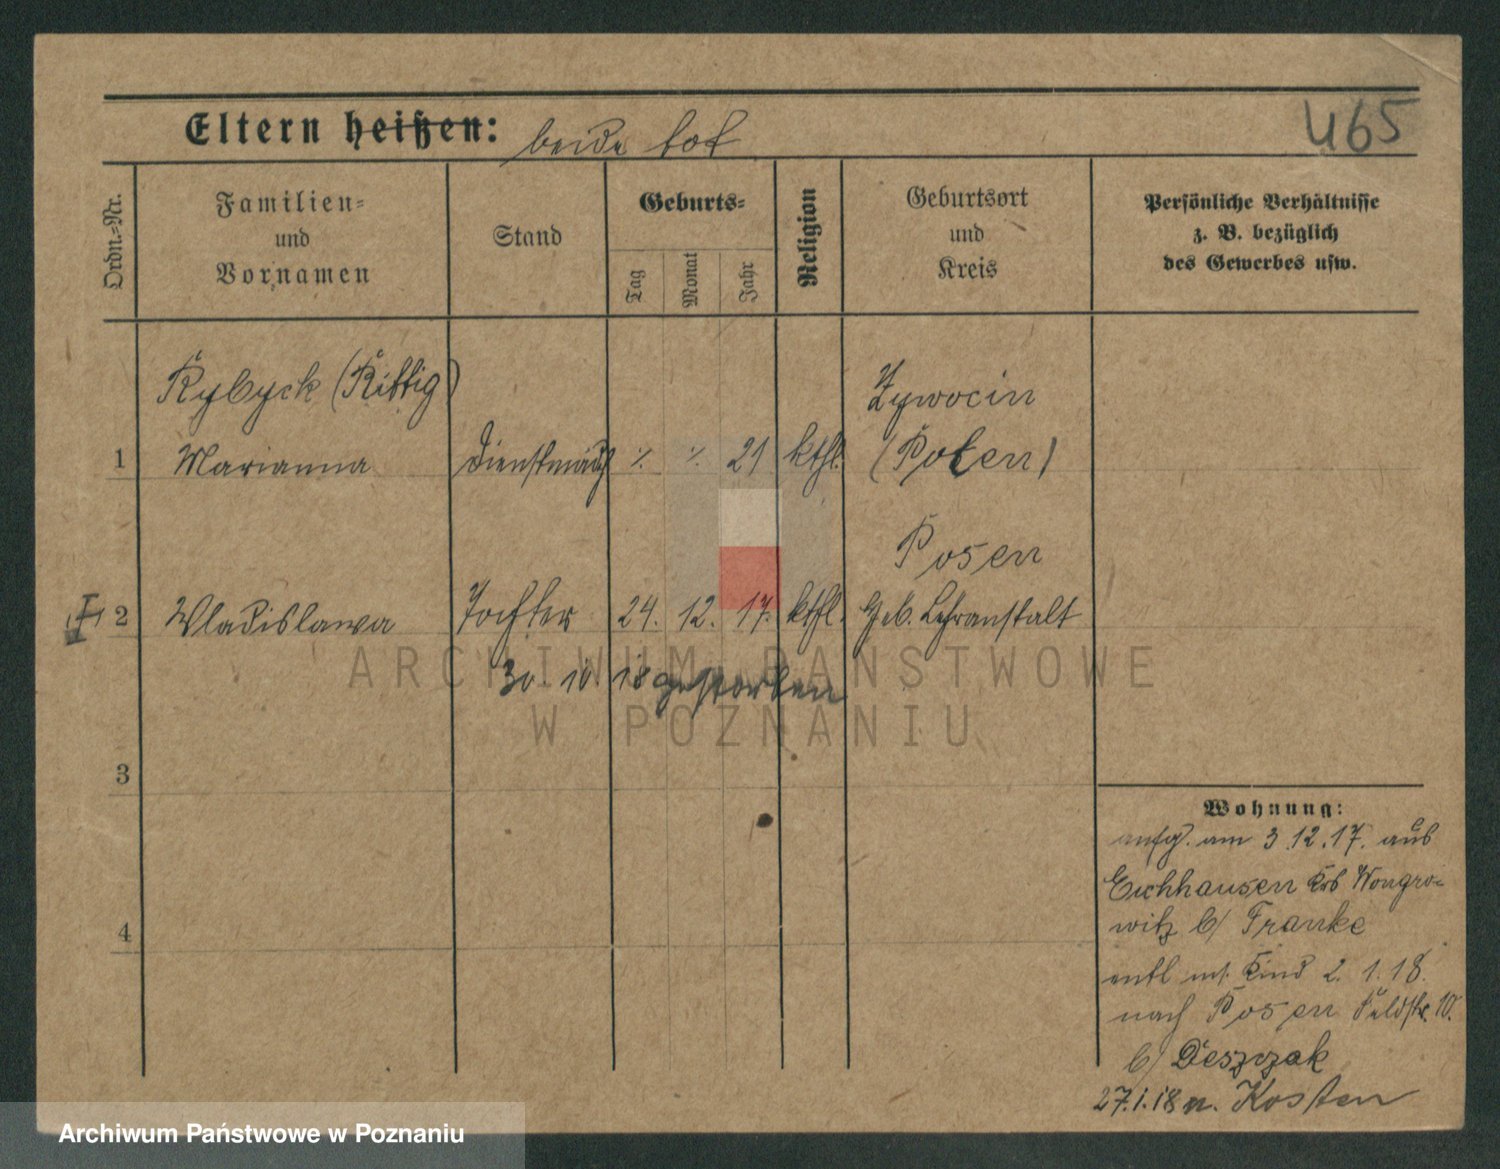 465
Eltern heißen: beide tot
Ordn.=Nr.
Familien=
und
Vornamen
Stand
Geburts=
Tag
Monat
Jahr
Religion
Geburtsort
und
Kreis
Persönliche Verhältnisse
z. B. bezüglich
des Gewerbes usw.
Rybyck (Rittig)
Zywocin
1 Marianna Dienstmäd ./. ./. 21 kthl. (Polen)
Posen
I 2 Wladislawa Tochter 24. 12. 17. kthl. Geb. Lehranstalt
30. 10. 18 gestorben
3
4
Wohnung:
aufg. am 3.12.17. aus
Eichhausen Krs Wongro=
witz b/ Franke
entl mit Kind 2. 1. 18.
nach Posen Feldstr. 10.
b/ Deszczak
27.1.18 n. Kosten
ARCHIWUM PAŃSTWOWE
W POZNANIU
Archiwum Państwowe w Poznaniu